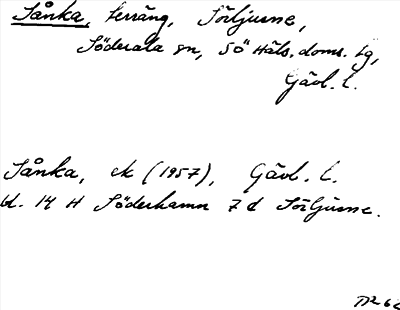 Sånka, terräng, Sörljusne,
Söderala sn, SÖ Häls. doms. tg,
Gävl. l.
Sånka, ek (1957), Gävl. l.
bl. 14 H Söderhamn 7 d Sörljusne.